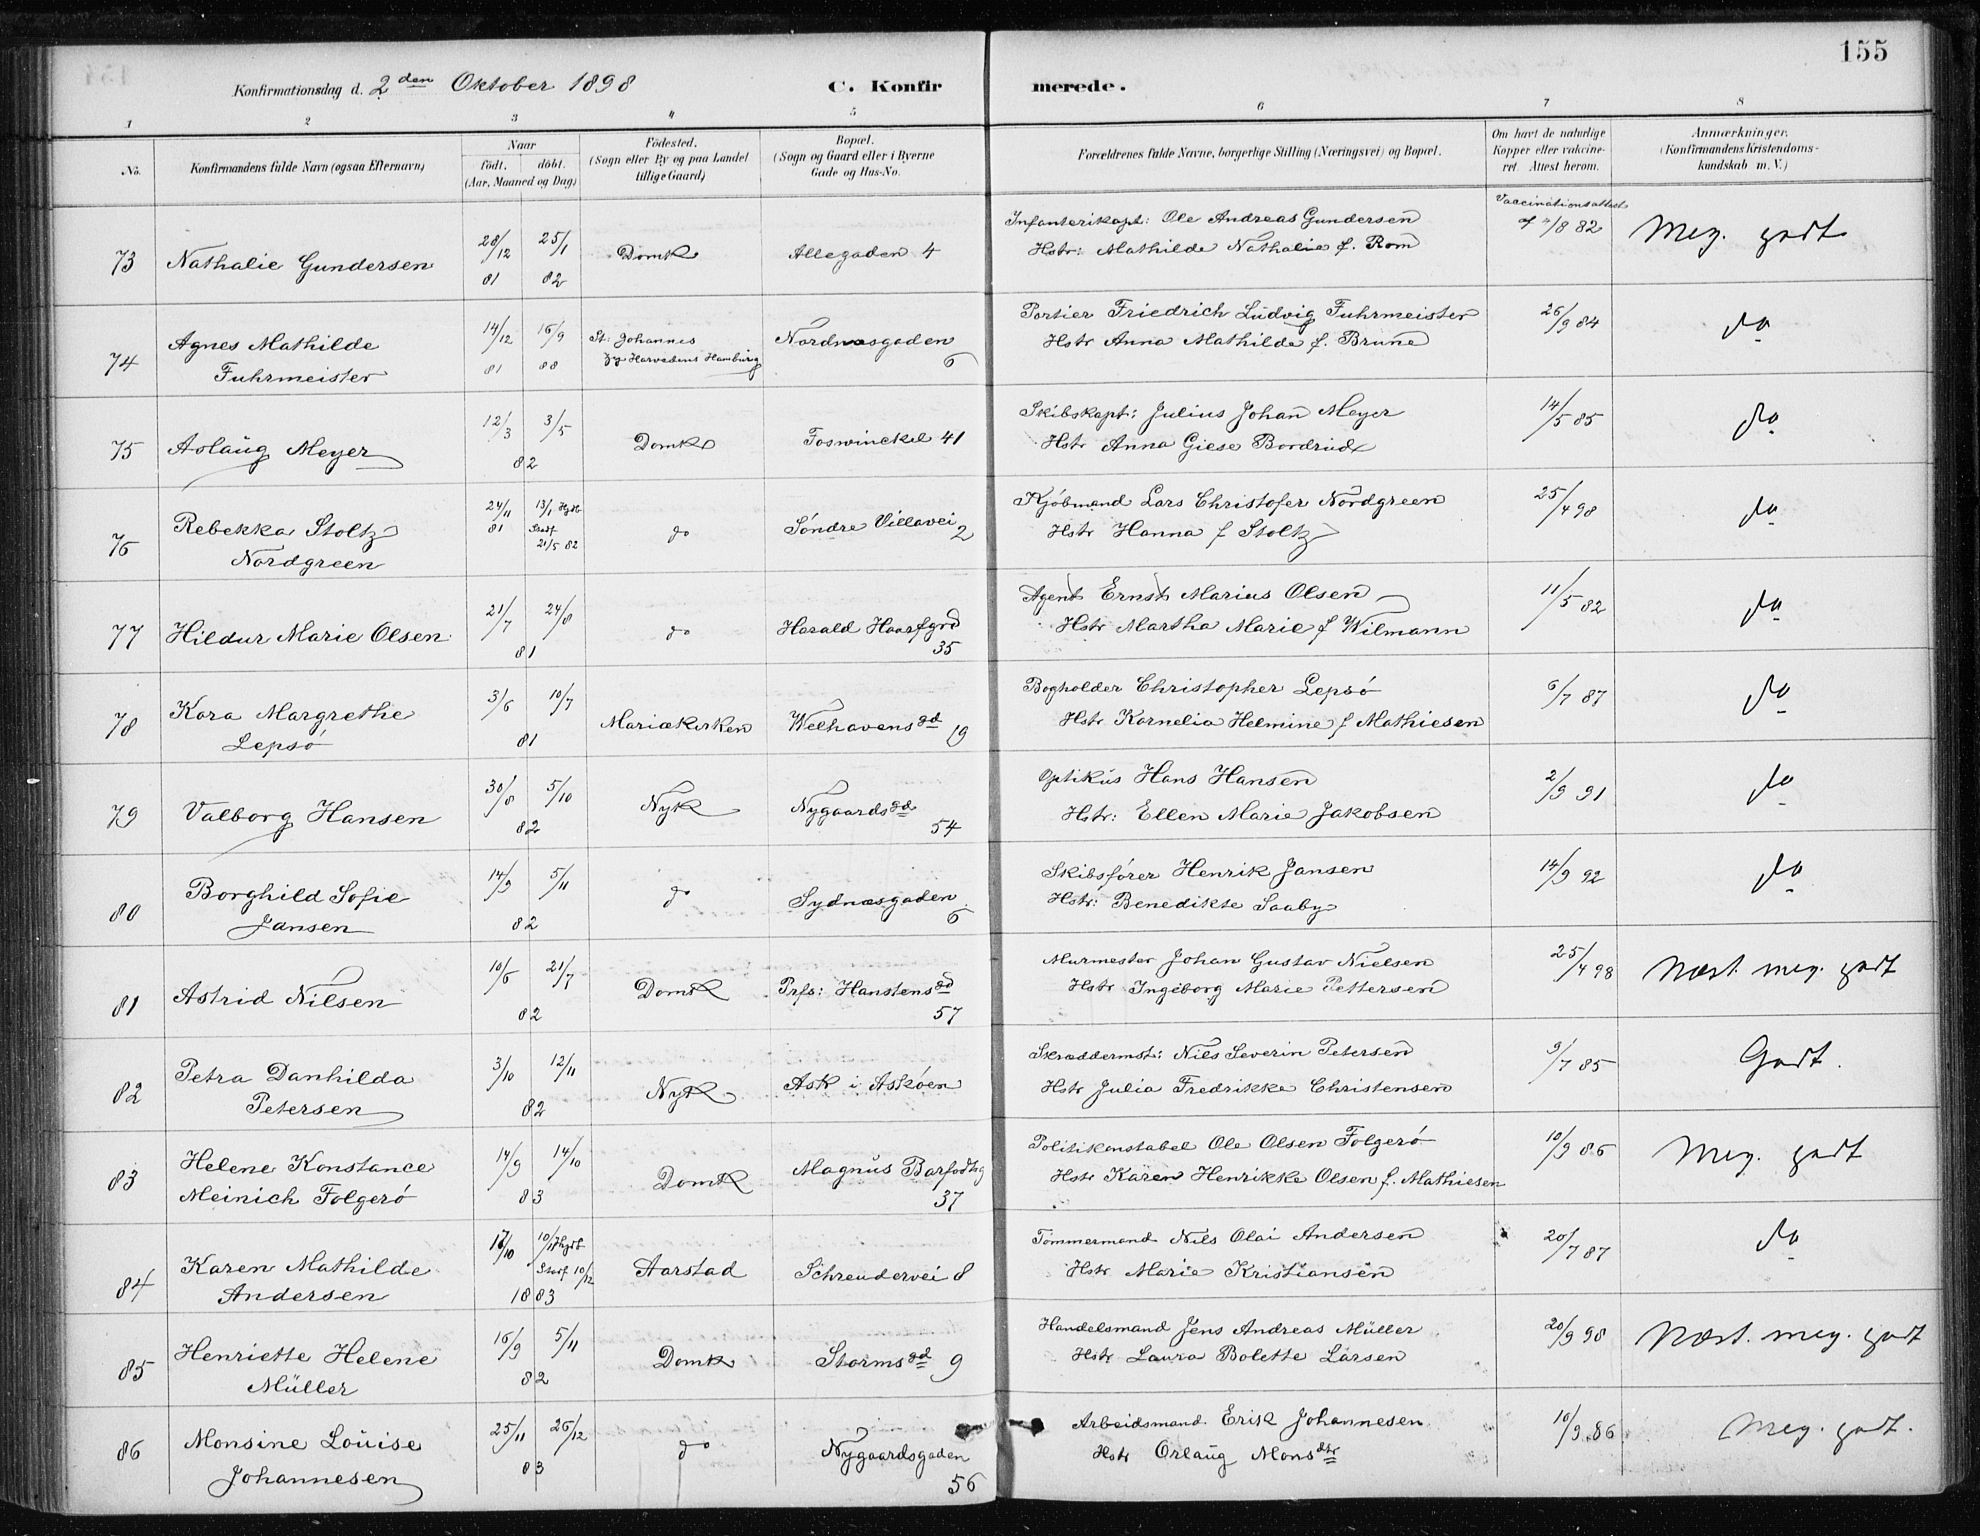 155
Konfirmationsdag d. 2den Oktober 1898 C. Konfirmerede.
1 2 3 4 5 6 7 8
No. Konfirmandens fulde Navn (ogsaa Efternavn) Naar födt. döbt. (Aar, Maaned og Dag) Födested. (Sogn eller By og paa Landet tillige Gaard) Bopæl. (Sogn og Gaard eller i Byerne Gade og Hus-No. Forældrenes fulde Navne, borgerlige Stilling (Næringsvei) og Bopæl. Om havt de naturlige Kopper eller vakcineret. Attest herom. Anmærkninger. (Konfirmandens Kristendomskundskab m. V.)
73 Nathalie Gundersen 28/12 81 25/1 82 Domk Allegaden 4 Infanterikapt: Ole Andreas Gundersen
Hstr: Mathilde Nathalie f. Rom Vaccinationsattest af /8 82 Meg. godt
74 Agnes Mathilde Fuhrmeister 14/12 81 16/9 88 St: Johannes Harvestehude Hamburg Nordnæsgaden 6 Portier Friedrich Ludvig Fuhrmeister
Hstr Anna Mathilde f. Brune 26/9 84 do
75 Aslaug Meyer 12/3 3/5 82 Domk Foswinckel 41 Skibskapt: Julius Johan Meyer
Hstr Anna Giese Bordrud 14/5 85 do
76 Rebekka Stoltz Nordgreen 24/11 81 13/1 Hjdb Stadf 21/5 82 do Söndre Villavei 2 Kjöbmand Lars Christofer Nordgreen
Hstr Hanna f Stoltz 25/4 98 do
77 Hildur Marie Olsen 21/7 24/8 81 do Harald Haarfgrd 35 Agent Ernst Marius Olsen
Hstr Martha Marie f Wilmann 11/5 82 do
78 Kora Margrethe Lepsö 3/6 10/7 81 Mariækirken Welhavensgd 19 Bogholder Christopher Lepsö
Hstr Kornelia Helmine f Mathiesen 6/7 87 do
79 Valborg Hansen 30/8 5/10 82 Nyk Nygaardsgd 54 Optikus Hans Hansen
Hstr: Ellen Marie Jakobsen 2/9 91 do
80 Borghild Sofie Jansen 14/9 5/11 82 do Sydnæsgaden 6 Skibsförer Henrik Jansen
Hstr: Benedikte Saaby 14/9 92 do
81 Astrid Nilsen 10/6 21/7 82 Domk Prfs: Hanstensgd 57 Murmester Johan Gustav Nielsen
Hstr Ingeborg Marie Pettersen 25/4 98 Næst. meg. godt
82 Petra Danhilda Petersen 3/10 12/11 82 Nyk Ask i Asköen Skræddermst: Nils Severin Petersen
Hstr Julia Fredrikke Christensen 9/7 85 Godt.
83 Helene Konstance Meinich Folgerö 14/9 14/10 83 Domk Magnus Barfodtsg 37 Politikonstabel Ole Olsen Folgerö
Hstr Karen Henrikke Olsen f. Mathiesen 10/9 86 Meg. godt
84 Karen Mathilde Andersen 17/10 10/11 Hjdb Stadf 10/12 1883 Aarstad Schreudervei 8 Tömmermand Nils Olai Andersen
Hstr Marie Kristiansen 20/7 87 do
85 Henriette Helene Müller 16/9 5/11 82 Domk Stormsgd 9 Handelsmand Jens Andreas Müller
Hstr Laura Bolette Larsen 20/9 98 Næst. meg. godt
86 Monsine Louise Johannesen 25/11 26/12 83 do Nygaardsgaden 56 Arbeidsmand Erik Johannesen
Hstr Orlaug Monsdtr 10/9 86 Meg. godt.